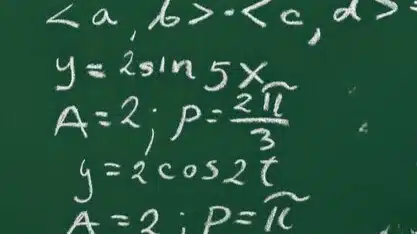 <a, b>·<c, d>=
y = 2sin 5x
A = 2; P = 2π/3
y = 2cos2t
A = 2; P = π